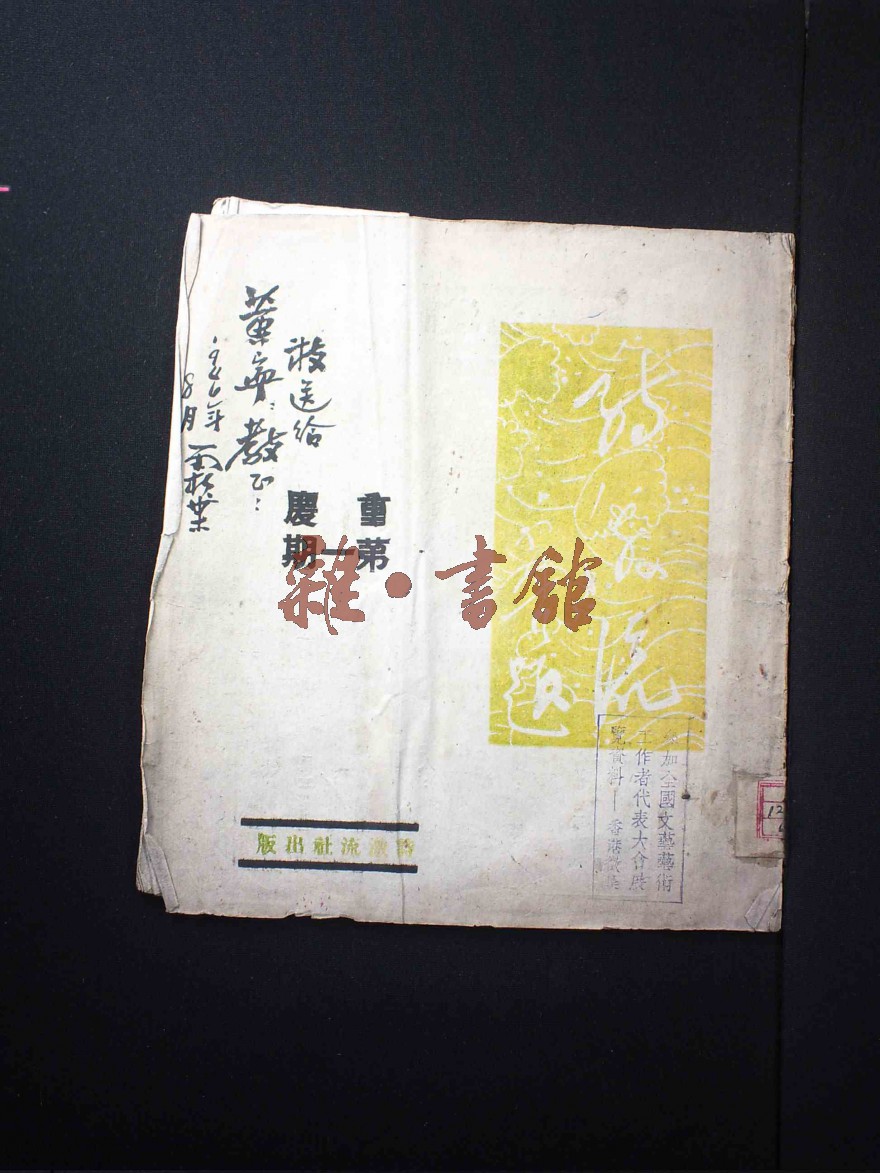 詩激流
題
敬送給
教正：
一九四六年
8月
重慶
第一期
雜·書館
詩激流社出版
參加全國文藝藝術
工作者代表大會展
覽資料—香港徵集